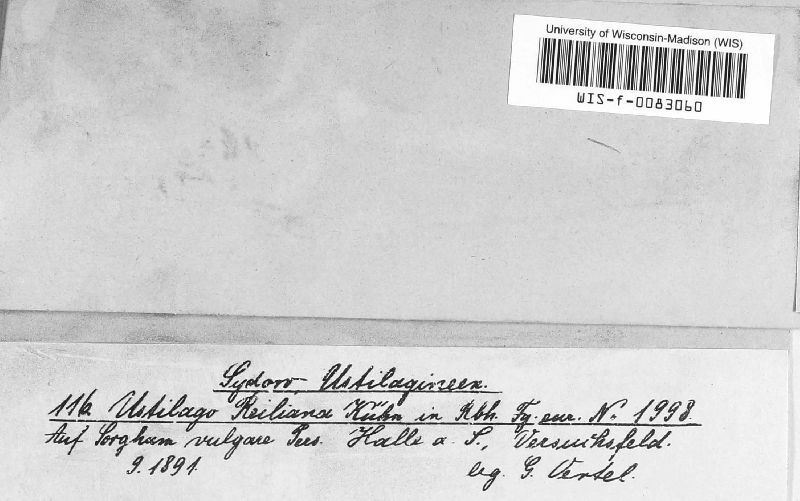 University of Wisconsin-Madison (WIS)
WIS-f-0083060
Sydow Ustilagineen.
116. Ustilago Reiliana Kühn in Rbh. Fg. eur. No. 1998.
Auf Sorghum vulgare Pers. Halle a. S., Versuchsfeld.
9.1891 leg. G. Oertel.